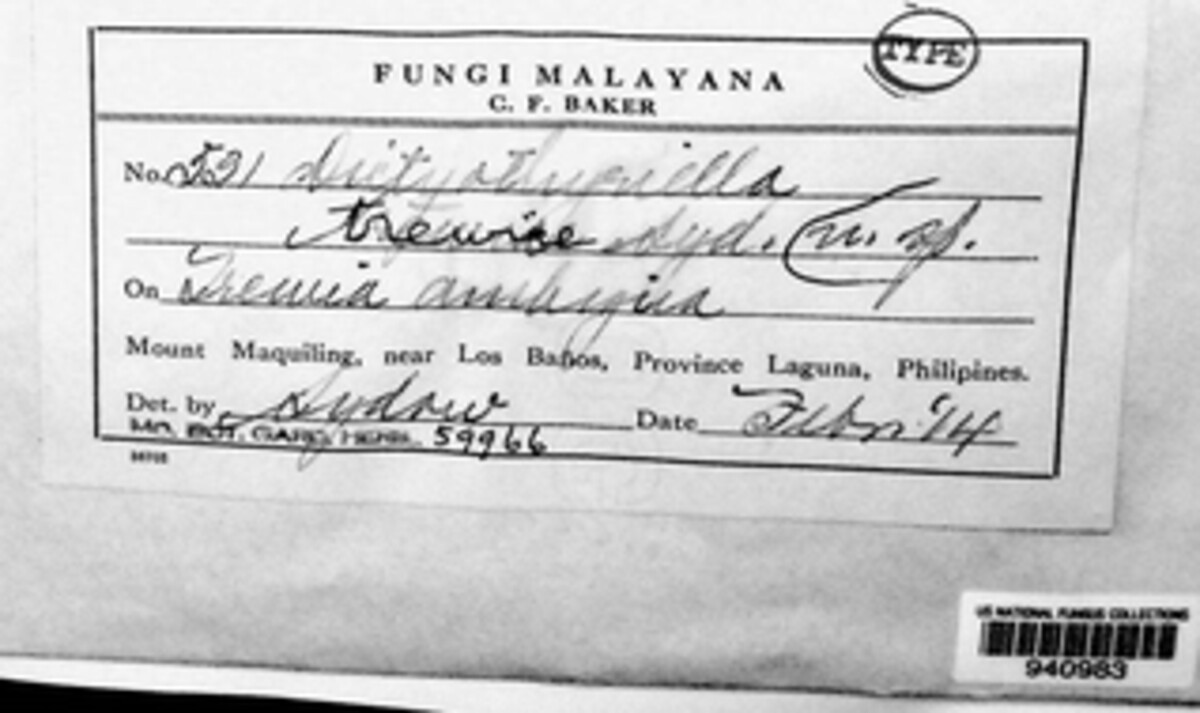 TYPE
FUNGI MALAYANA
C. F. BAKER
No. 531 Dictyothyriella
trewiae Syd. (n. sp.
On Trewia ambigua
Mount Maquiling, near Los Baños, Province Laguna, Philipines.
Det. by Sydow Date Febr. '14
MO. BOT. GARD. HERB. 59966
US NATIONAL FUNGUS COLLECTIONS
940983